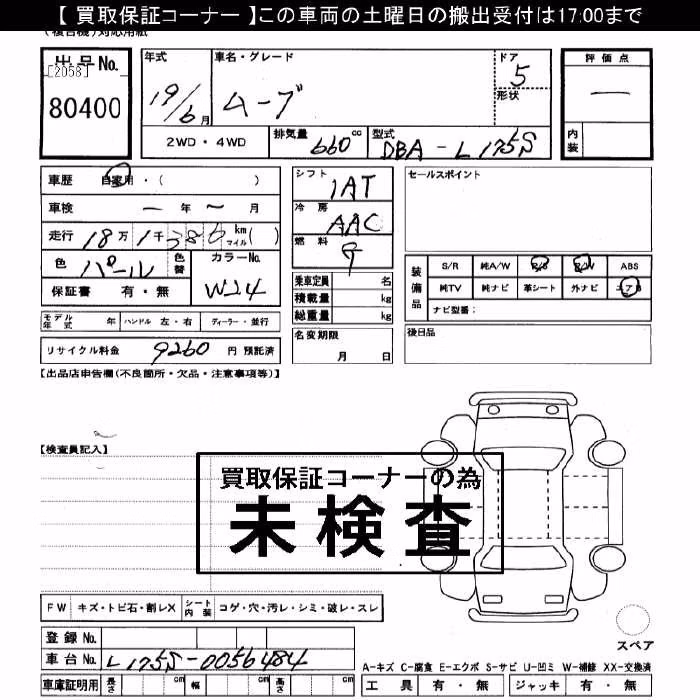 【 買取保証コーナー 】この車両の土曜日の搬出受付は17:00まで
(複合機)対応用紙
出品No.
[2058]
80400
年式
19/6月
車名・グレード
ムーブ
ドア
5
形状
評価点
一
内装
2WD・4WD
排気量
660cc
型式
DBA-L175S
車歴
自家用・( )
車検
ー 年 ～ 月
走行
18万1千386 km マイル( )
色
パール
色替
カラーNo.
W24
保証書 有・無
シフト
IAT
冷房
AAC
燃料
g
乗車定員 名
積載量 kg
総重量 kg
セールスポイント
装備品
S/R 純A/W P/S P/W ABS
純TV 純ナビ 革シート 外ナビ エアB
ナビ型番:
モデル年式 年 ハンドル 左・右 ディーラー・並行
名変期限
月 日
後日品
リサイクル料金 9260 円 預託済
【出品店申告欄(不良箇所・欠品・注意事項等)】
【検査員記入】
買取保証コーナーの為
未検査
FW キズ・トビ石・割レX シート内装 コゲ・穴・汚レ・シミ・破レ・スレ
登録No.
車台No. L175S-0056484
スペア
A-キズ C-腐食 E-エクボ S-サビ U-凹ミ W-補修 XX-交換済
車庫証明用 長さ cm 幅 cm 高さ cm
工具 有・無 ジャッキ 有・無